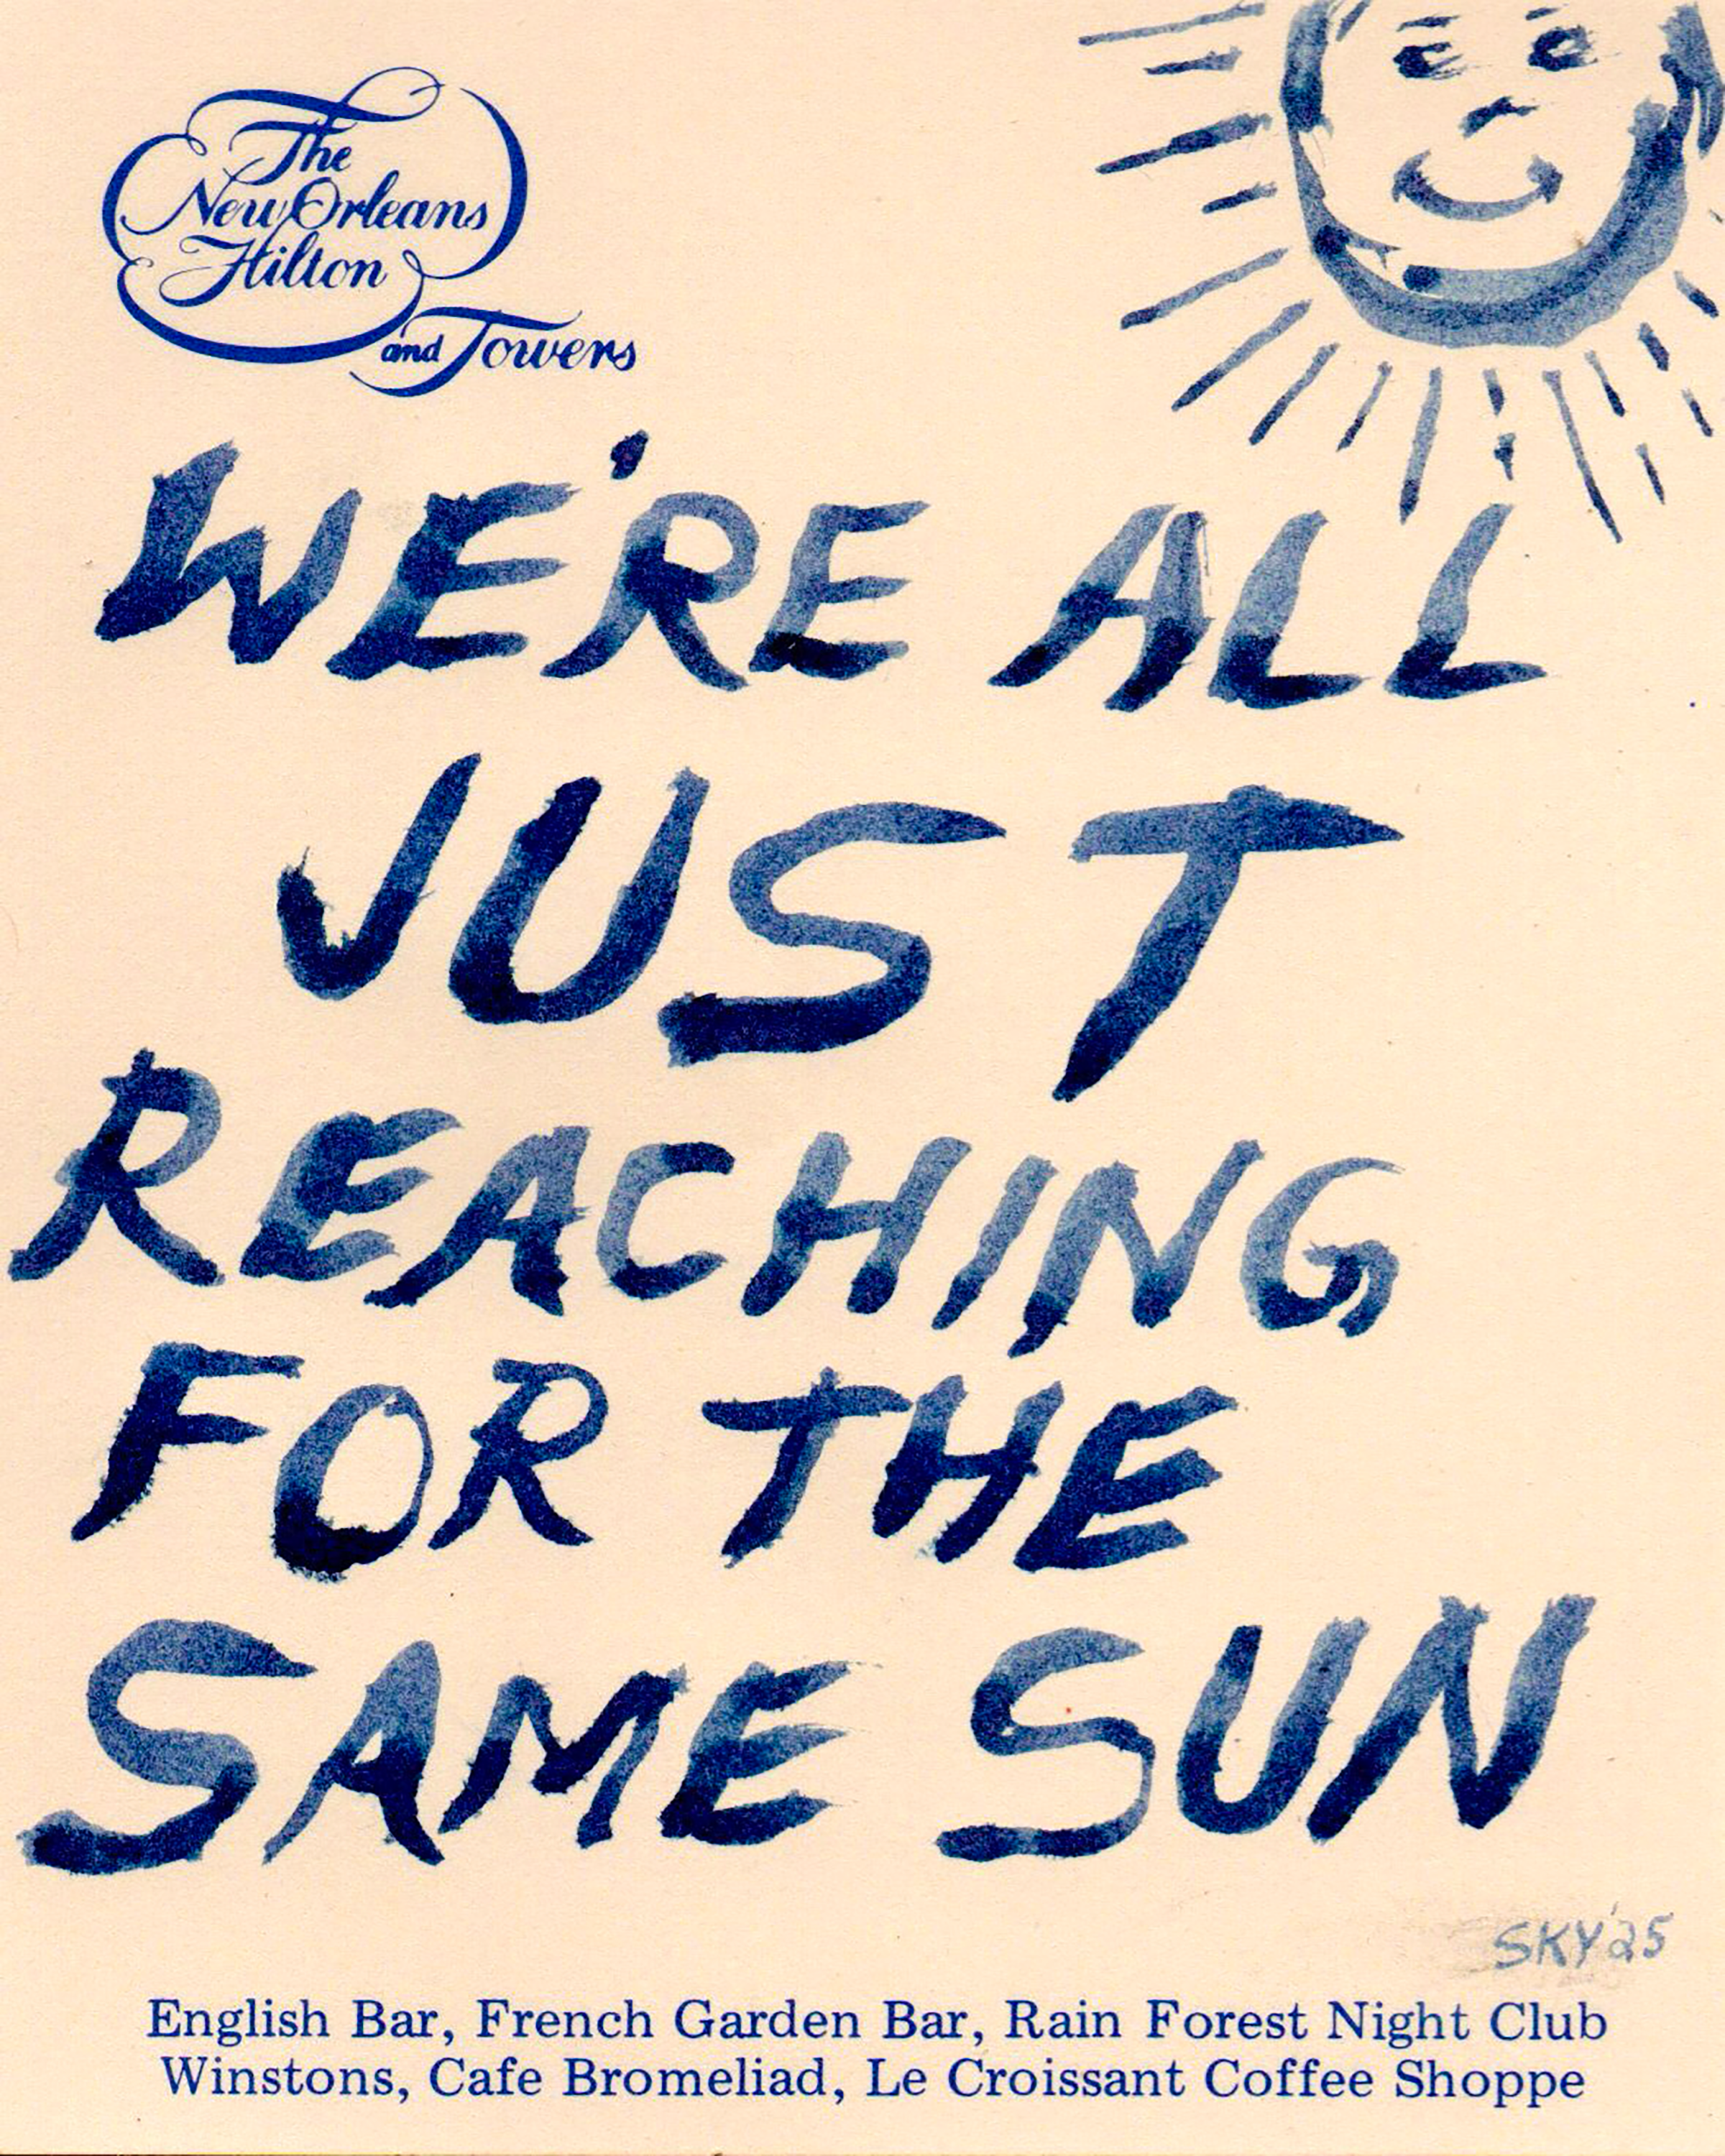 The
New Orleans
Hilton
and Towers
WE'RE ALL
JUST
REACHING
FOR THE
SAME SUN
SKY'25
English Bar, French Garden Bar, Rain Forest Night Club
Winstons, Cafe Bromeliad, Le Croissant Coffee Shoppe